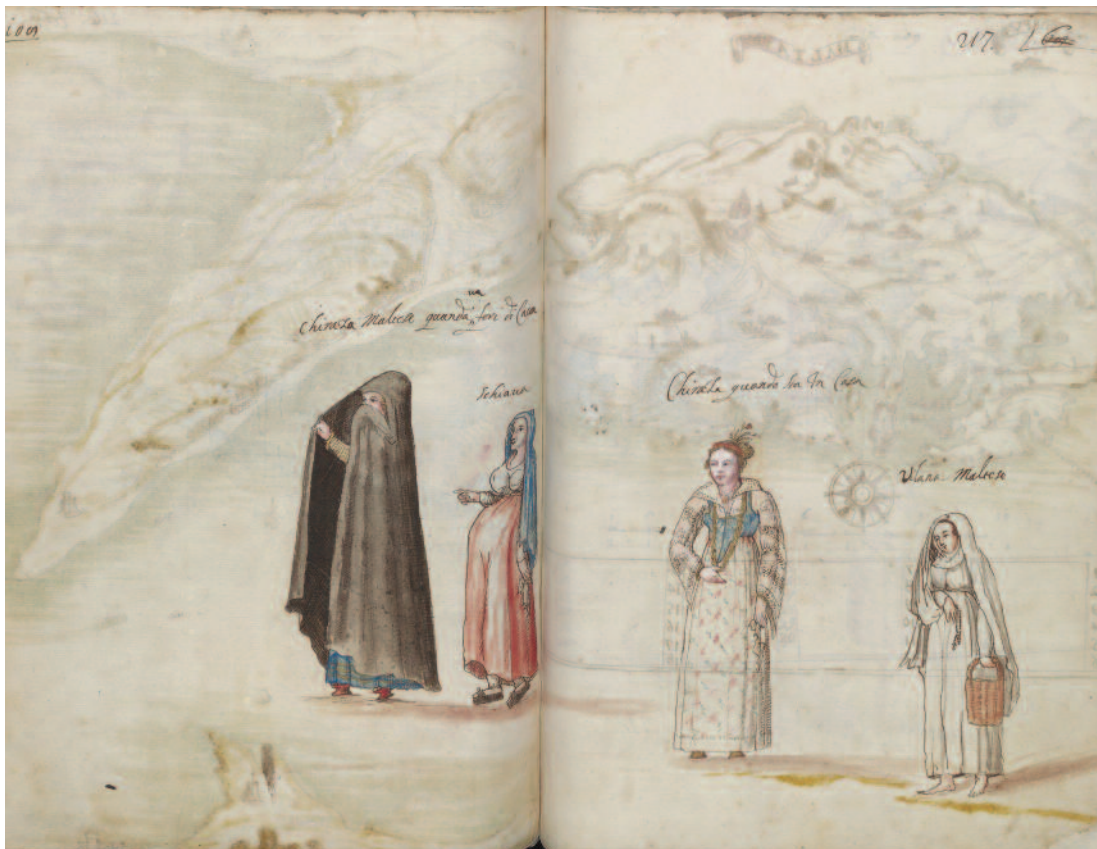 ios
217.
va
Chirazza Maltese quanda fori di Casa
Schiava
Chirazza quando sta In Casa
Vlana Maltese